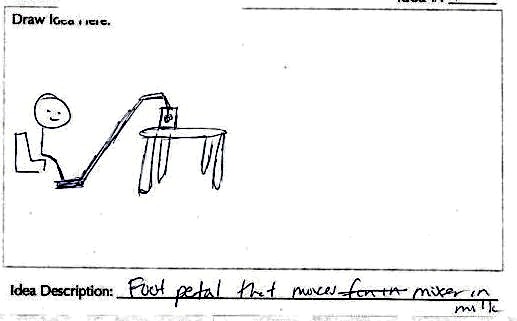 Draw Idea Here.
Idea Description: Foot petal that moves mixer in
milk